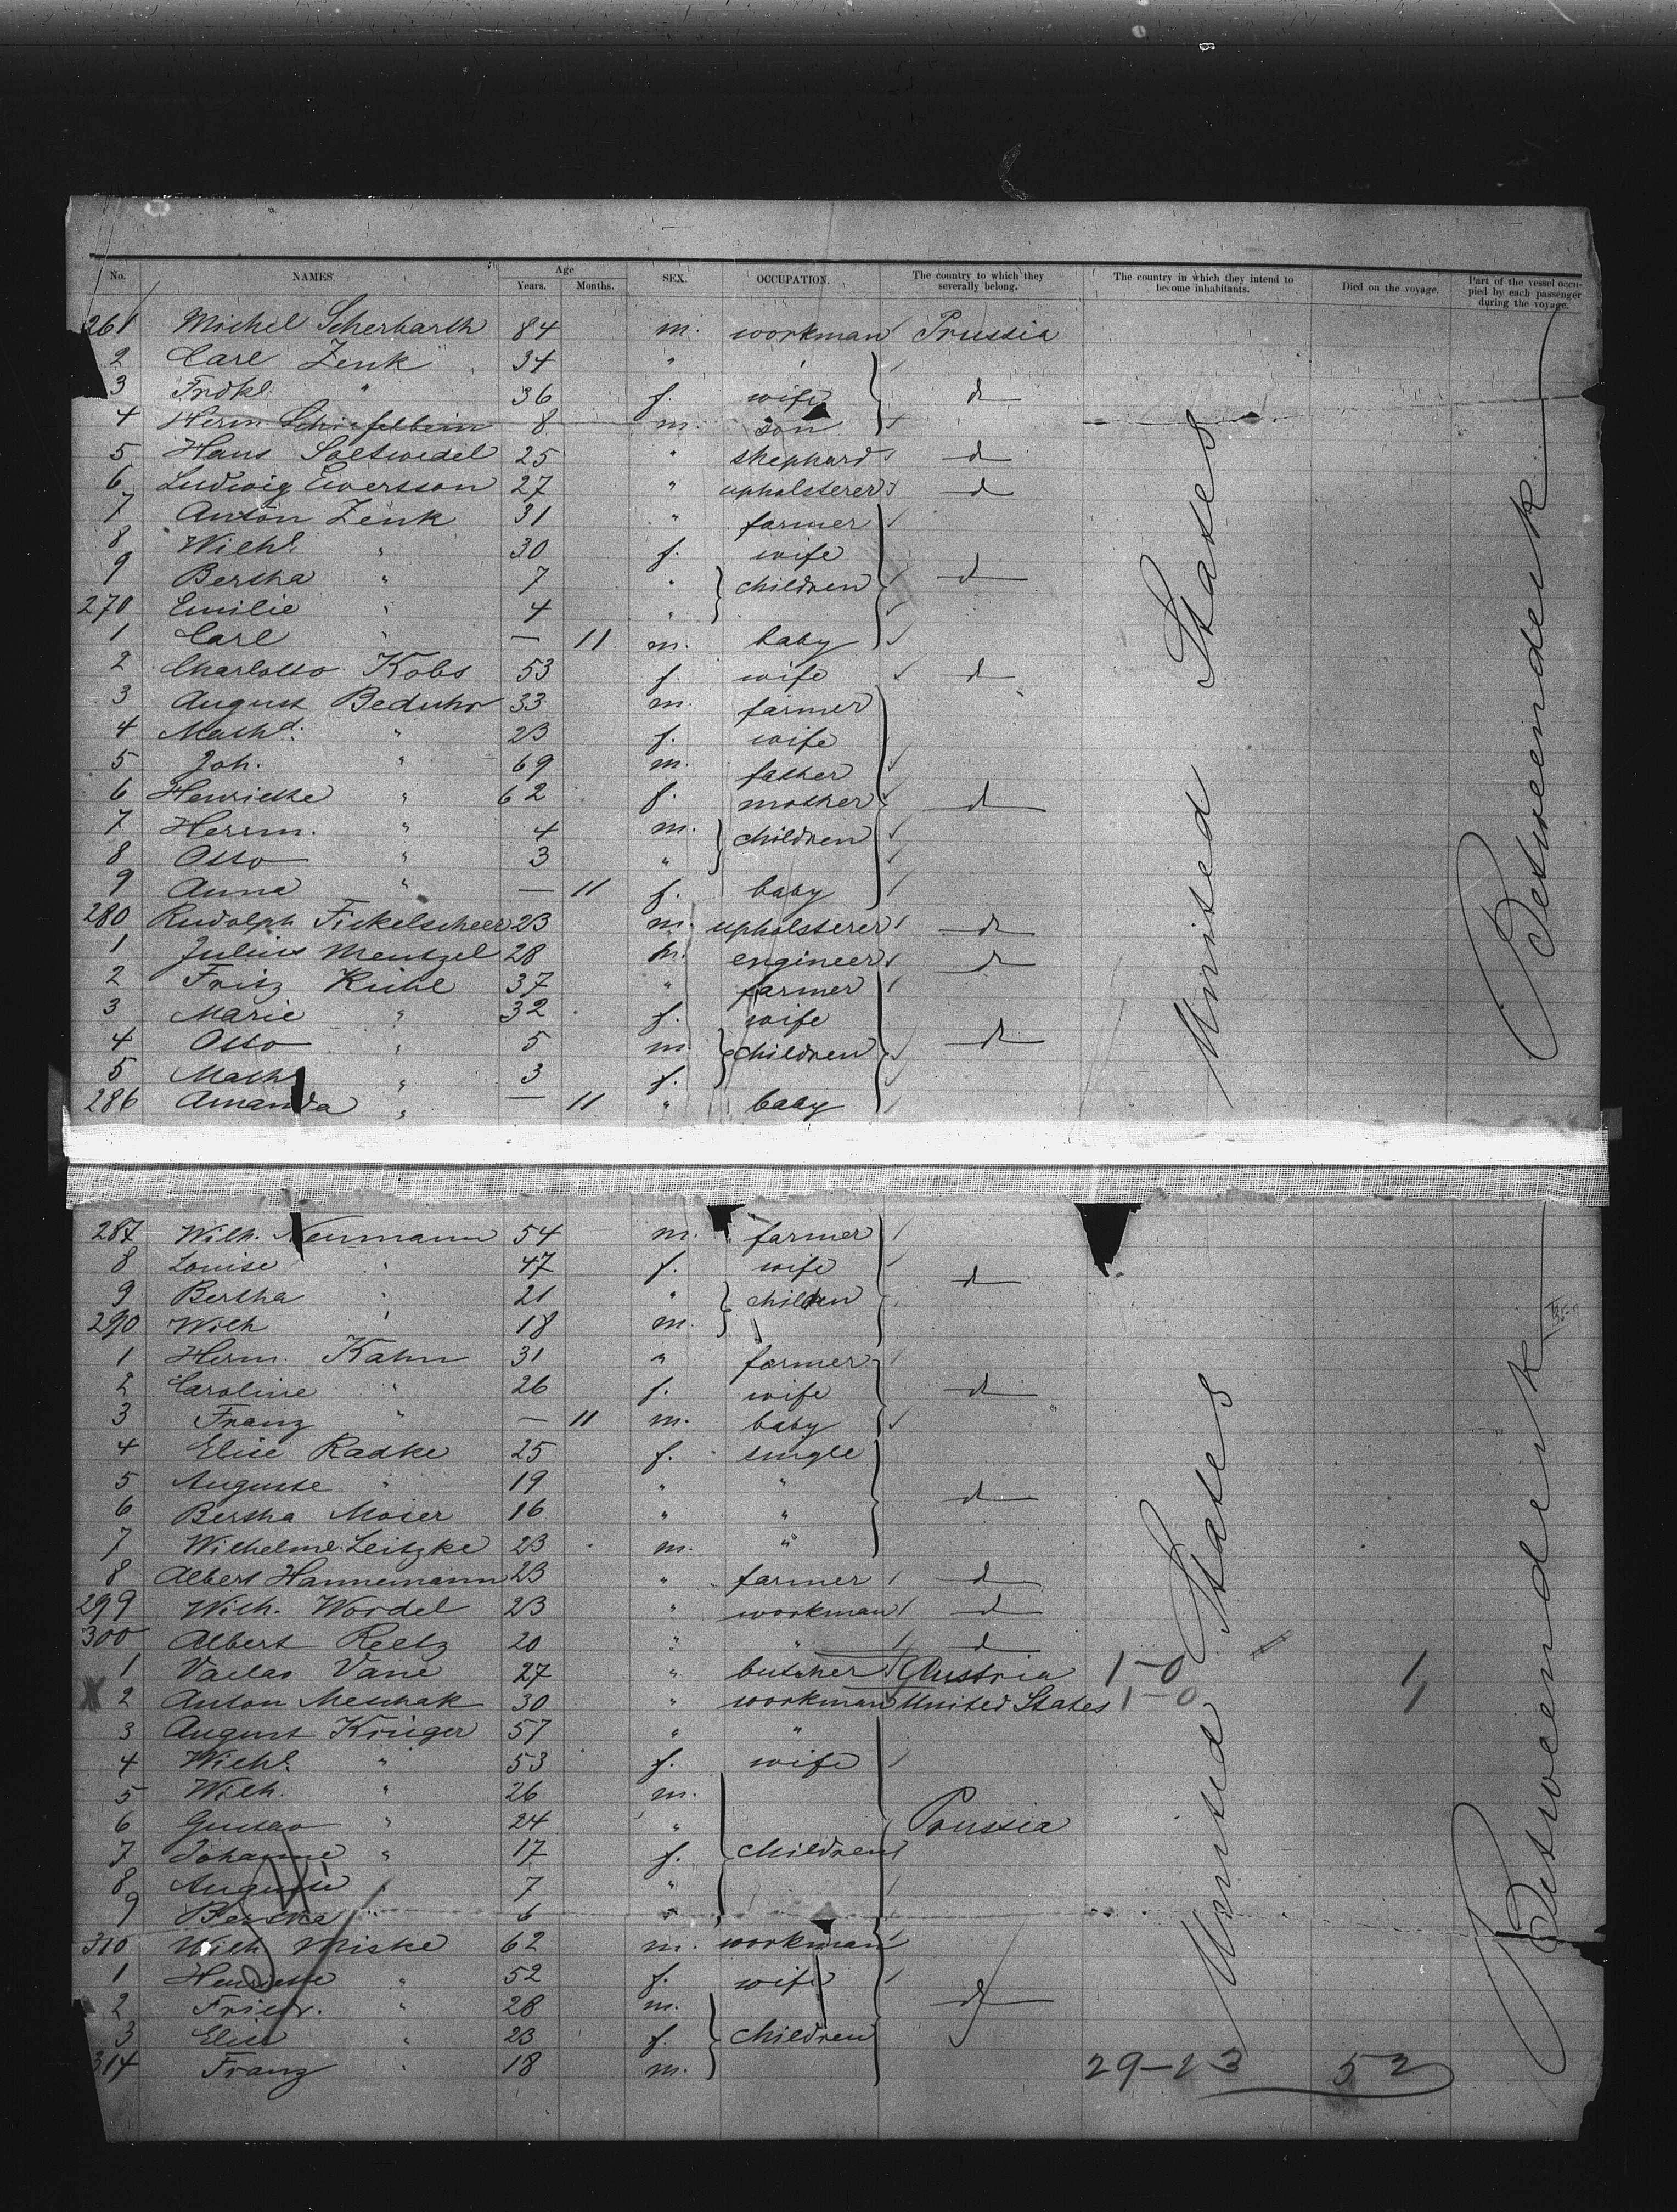 No. NAMES. Age Years. Months. SEX. OCCUPATION. The country to which they severally belong. The country in which they intend to become inhabitants. Died on the voyage. Part of the vessel occupied by each passenger during the voyage.
261 Michel Scherbarth 84 m. workman Prussia
2 Carl Zenk 34 " "
3 Frdkl. " 36 f. wife d
4 Herm. Schiefelbein 8 m. son
5 Hans Soltwedel 25 " shephard d
6 Ludwig Ewersson 27 " upholsterer d
7 Anton Zenk 31 " farmer
8 Wilhl. " 30 f. wife
9 Bertha " 7 " children d
270 Emilie " 4 "
1 Carl " — 11 m. baby
2 Charlotto Kobs 53 f. wife d
3 August Beduhr 33 m. farmer
4 Mathd. " 23 f. wife
5 Joh. " 69 m. father
6 Henriette " 62 f. mother d
7 Herrm. " 4 m. children
8 Otto " 3 "
9 Anna " — 11 f. baby
280 Rudolph Fickelscheer 23 m. upholsterer d
1 Julius Mentzel 28 m. engineer d
2 Fritz Kühl 37 " farmer
3 Marie " 32 f. wife
4 Otto " 5 m children d
5 Math " 3 f.
286 Amanda " — 11 " baby
United States
Betweendenk
287 Wilh. Neumann 54 m. farmer
8 Louise " 47 f. wife d
9 Bertha " 21 " children
290 Wilh " 18 m.
1 Herm. Kahn 31 " farmer
2 Caroline " 26 f. wife d
3 Franz " — 11 m. baby
4 Elise Radke 25 f. single
5 Auguste " 19 " " d
6 Bertha Moser 16 " "
7 Wilhelml. Leitzke 23 m. "
8 Albert Hannemann 23 " farmer d
299 Wilh. Wordel 23 " workman d
300 Albert Reetz 20 " " d
1 Vaclav Vane 27 " butcher Austria 1-0 1
X 2 Anton Meschak 30 " workman United States 1-0 1
3 August Krüger 57 " "
4 Wilhl. " 53 f. wife
5 Wilh. " 26 m.
6 Gustav " 24 " Prussia
7 Johanne " 17 f. children
8 Auguste " 7 "
9 Bertha " 6 "
310 Wilh Miske 62 m. workman
1 Henriette " 52 f. wife
2 Friedr. " 28 m. d
3 Elise " 23 f. children
314 Franz " 18 m.
29-23 52
United States
Betweendenk